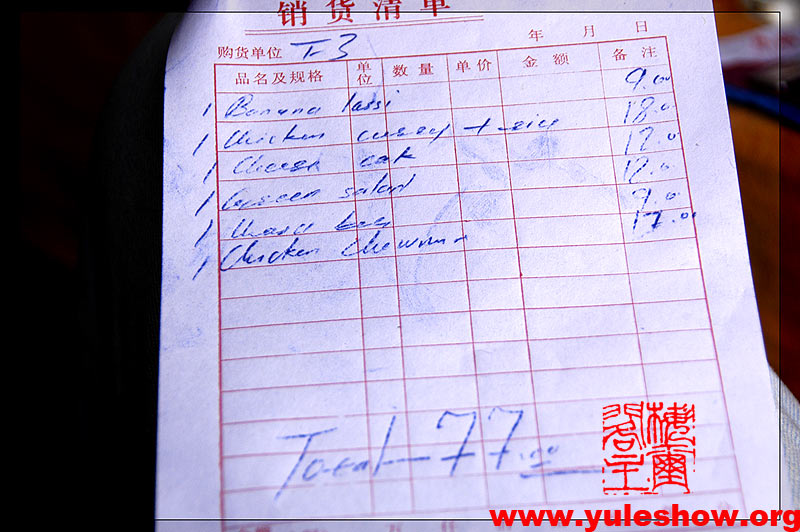 销货清单
年 月 日
购货单位 T-3
品名及规格 单位 数量 单价 金额 备注
1 Banana lassi 9.00
1 Chicken curry + rice 18.0
1 Cheese cak 12.0
1 Green salad 12.0
1 9.0
1 Chicken Chowmin 17.00
Total - 77.00
www.yuleshow.org